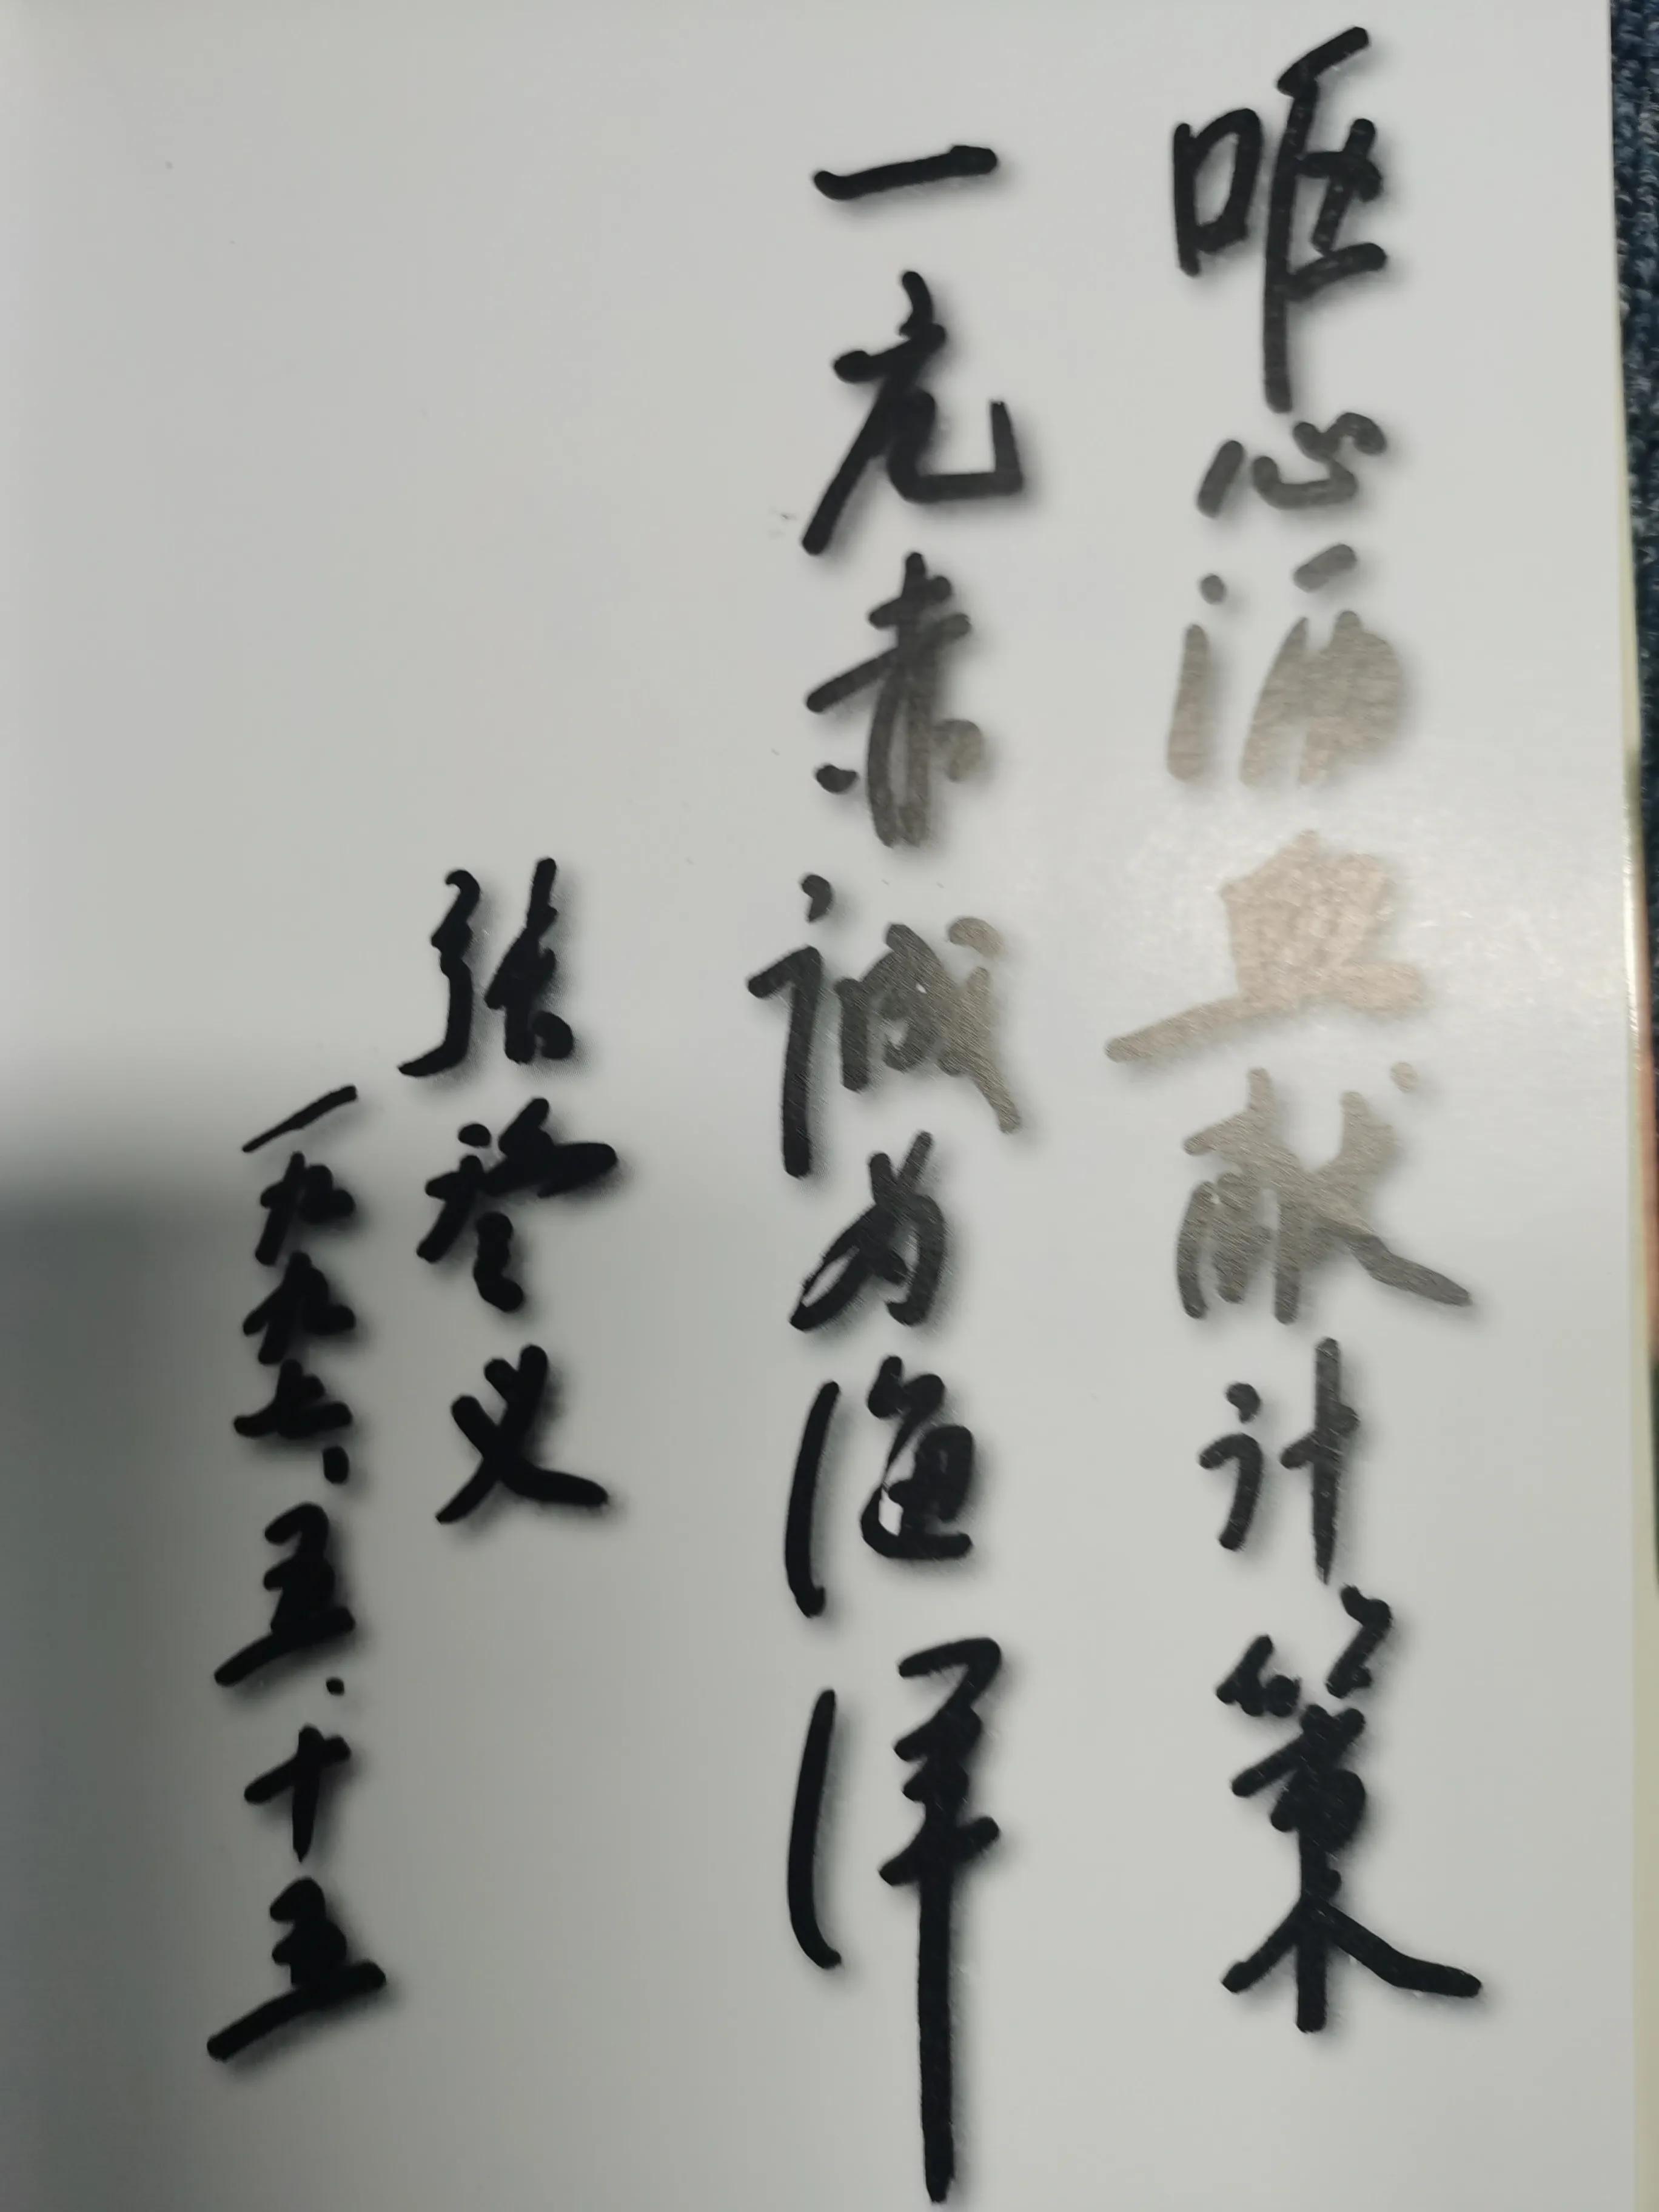 唯心血献计策
一赤诚为海洋
张登义
一九九七、五.十五